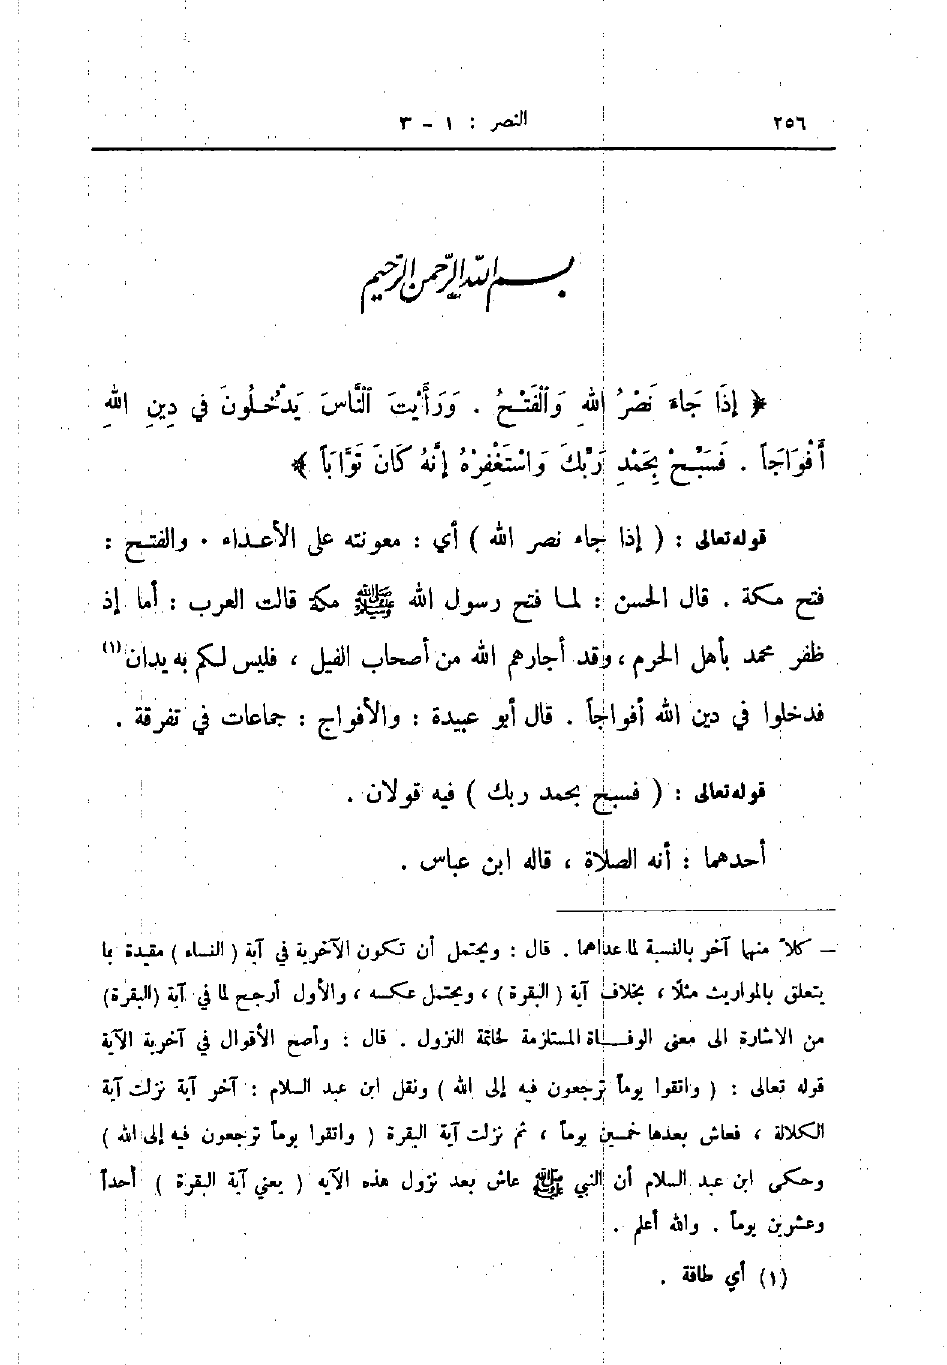 ٢٥٦ النصر : ١ - ٣
بسم الله الرحمن الرحيم
﴿ إِذَا جَاءَ نَصْرُ اللهِ وَالْفَتْحُ . وَرَأَيْتَ النَّاسَ يَدْخُلُونَ فِي دِينِ اللهِ
أَفْوَاجَاً . فَسَبِّحْ بِحَمْدِ رَبِّكَ وَاسْتَغْفِرْهُ إِنَّهُ كَانَ تَوَّابَاً ﴾
قوله تعالى : ( إذا جاء نصر الله ) أي : معونته على الأعداء . والفتح :
فتح مكة . قال الحسن : لما فتح رسول الله ﷺ مكة قالت العرب : أما إذ
ظفر محمد بأهل الحرم ، وقد أجارهم الله من أصحاب الفيل ، فليس لكم به يدان (١)
فدخلوا في دين الله أفواجاً . قال أبو عبيدة : والأفواج : جماعات في تفرقة .
قوله تعالى : ( فسبح بحمد ربك ) فيه قولان .
أحدهما : أنه الصلاة ، قاله ابن عباس .
– كلاً منها آخر بالنسبة لما عداهما . قال : ويحتمل أن تكون الآخرية في آية ( النساء ) مقيدة بما
يتعلق بالمواريث مثلاً ، بخلاف آية ( البقرة ) ، ويحتمل عكسه ، والأول أرجح لما في آية (البقرة)
من الاشارة الى معنى الوفاة المستلزمة لخاتمة النزول . قال : وأصح الأقوال في آخرية الآية
قوله تعالى : ( واتقوا يوماً ترجعون فيه إلى الله ) ونقل ابن عبد السلام : آخر آية نزلت آية
الكلالة ، فعاش بعدها خمسين يوماً ، ثم نزلت آية البقرة ( واتقوا يوماً ترجعون فيه إلى الله )
وحكى ابن عبد السلام أن النبي ﷺ عاش بعد نزول هذه الآيه ( يعني آية البقرة ) أحداً
وعشرين يوماً . والله أعلم .
(١) أي طاقة .